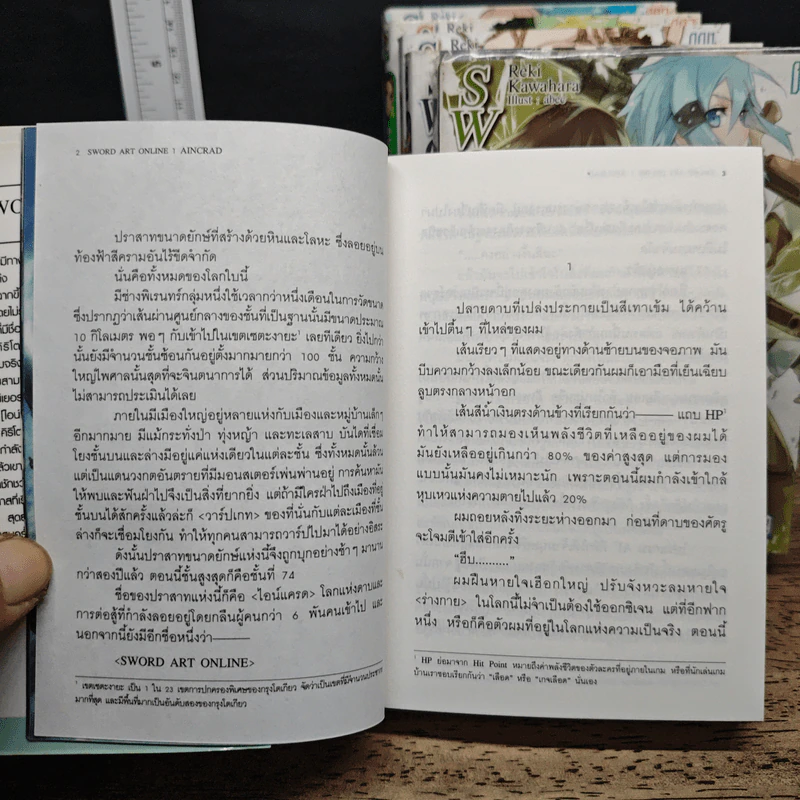 2 SWORD ART ONLINE 1 AINCRAD
ปราสาทขนาดยักษ์ที่สร้างด้วยหินและโลหะ ซึ่งลอยอยู่บน
ท้องฟ้าสีครามอันไร้ขีดจำกัด
นั่นคือทั้งหมดของโลกใบนี้
มีช่างพิเรนทร์กลุ่มหนึ่งใช้เวลากว่าหนึ่งเดือนในการวัดขนาด
ซึ่งปรากฏว่าเส้นผ่านศูนย์กลางของชั้นที่เป็นฐานนั้นมีขนาดประมาณ
10 กิโลเมตร พอๆ กับเข้าไปในเขตเซตะงายะ1 เลยทีเดียว ยิ่งไปกว่า
นั้นยังมีจำนวนชั้นซ้อนกันอยู่ตั้งมากมายกว่า 100 ชั้น ความกว้าง
ใหญ่ไพศาลนั้นสุดที่จะจินตนาการได้ ส่วนปริมาณข้อมูลทั้งหมดนั้น
ไม่สามารถประเมินได้เลย
ภายในมีเมืองใหญ่อยู่หลายแห่งกับเมืองและหมู่บ้านเล็กๆ
อีกมากมาย มีแม้กระทั่งป่า ทุ่งหญ้า และทะเลสาบ บันไดที่เชื่อม
โยงชั้นบนและล่างมีอยู่แค่แห่งเดียวในแต่ละชั้น ซึ่งทั้งหมดนั้นล้วน
แต่เป็นดวงกตอันตรายที่มีมอนสเตอร์เพ่นพ่านอยู่ การค้นหามัน
ให้พบและฟันฝ่าไปจึงเป็นสิ่งที่ยากยิ่ง แต่ถ้ามีใครฝ่าไปถึงเมืองที่อยู่
ชั้นบนได้สักครั้งแล้วล่ะก็ <วาร์ปเกท> ของที่นั่นกับแต่ละเมืองที่ชั้น
ล่างก็จะเชื่อมโยงกัน ทำให้ทุกคนสามารถวาร์ปไปมาได้อย่างอิสระ
ดังนั้นปราสาทขนาดยักษ์แห่งนี้จึงถูกบุกอย่างช้าๆ มานาน
กว่าสองปีแล้ว ตอนนี้ชั้นสูงสุดก็คือชั้นที่ 74
ชื่อของปราสาทแห่งนี้ก็คือ <ไอน์แครด> โลกแห่งดาบและ
การต่อสู้ที่กำลังลอยอยู่โดยกลืนผู้คนกว่า 6 พันคนเข้าไป และ
นอกจากนี้ยังมีอีกชื่อหนึ่งว่า———
<SWORD ART ONLINE>
1 เขตเซตะงายะ เป็น 1 ใน 23 เขตการปกครองพิเศษของกรุงโตเกียว จัดว่าเป็นเขตที่มีจำนวนประชากร
มากที่สุด และมีพื้นที่มากเป็นอันดับสองของกรุงโตเกียว
3
1
ปลายดาบที่เปล่งประกายเป็นสีเทาเข้ม ได้คว้าน
เข้าไปตื้นๆ ที่ไหล่ของผม
เส้นเรียวๆ ที่แสดงอยู่ทางด้านซ้ายบนของจอภาพ มัน
บีบความกว้างลงเล็กน้อย ขณะเดียวกันผมก็เอามือที่เย็นเฉียบ
ลูบตรงกลางหน้าอก
เส้นสีน้ำเงินตรงด้านข้างที่เรียกกันว่า——— แถบ HP1
ทำให้สามารถมองเห็นพลังชีวิตที่เหลืออยู่ของผมได้
มันยังเหลืออยู่เกินกว่า 80% ของค่าสูงสุด แต่การมอง
แบบนั้นมันคงไม่เหมาะนัก เพราะตอนนี้ผมกำลังเข้าใกล้
หุบเหวแห่งความตายไปแล้ว 20%
ผมถอยหลังทิ้งระยะห่างออกมา ก่อนที่ดาบของศัตรู
จะโจมตีเข้าใส่อีกครั้ง
“ฮึบ..........”
ผมฝืนหายใจเฮือกใหญ่ ปรับจังหวะลมหายใจ
<ร่างกาย> ในโลกนี้ไม่จำเป็นต้องใช้ออกซิเจน แต่ที่อีกฟาก
หนึ่ง หรือก็คือตัวผมที่อยู่ในโลกแห่งความเป็นจริง ตอนนี้
1 HP ย่อมาจาก Hit Point หมายถึงค่าพลังชีวิตของตัวละครที่อยู่ภายในเกม หรือที่นักเล่นเกม
บ้านเราชอบเรียกกันว่า “เลือด” หรือ “เกจเลือด” นั่นเอง
Reki
Kawahara
Illust : abec
SW